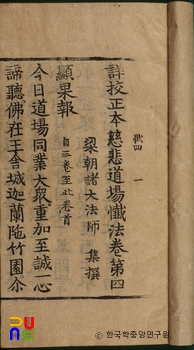 詳校正本慈悲道場懺法卷第四
梁朝諸大法師 集撰
顯果報
自三卷至此卷首
今日道場同業大衆重加至誠一心
諦聽佛在王舍城迦蘭陁竹園尒
一
PUNG
ⓒ 한국학중앙연구원